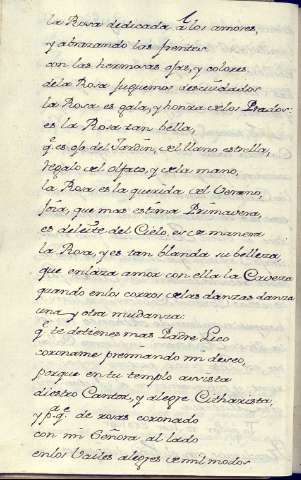 la Rosa dedicada a los amores,
y abrazando las frentes
con las hermosas ojas, y colores
dela Rosa juguemos descuidados
la Rosa es gala, y honra delos Prados:
es la Rosa tan bella,
q.e es ojo del Jardin, del llano estrella,
regalo del olfato, y dela mano,
la Rosa es la querida del Verano,
joia, que mas estima Primavera,
es deleite del Cielo, es de manera
la Rosa, y es tan blanda su belleza,
que enlaza amor con ella la Caveza
quando enlos corros delas danzas danza
una y otra mudanza:
q.e te detienes mas Padre Lieo
coroname premiando mi deseo,
porque en tu templo asista
diestro Cantor, y alegre Citharista,
y p.a q.e de rosas coronado
con mi Señora al lado
enlos Vailes alegres de mil modos